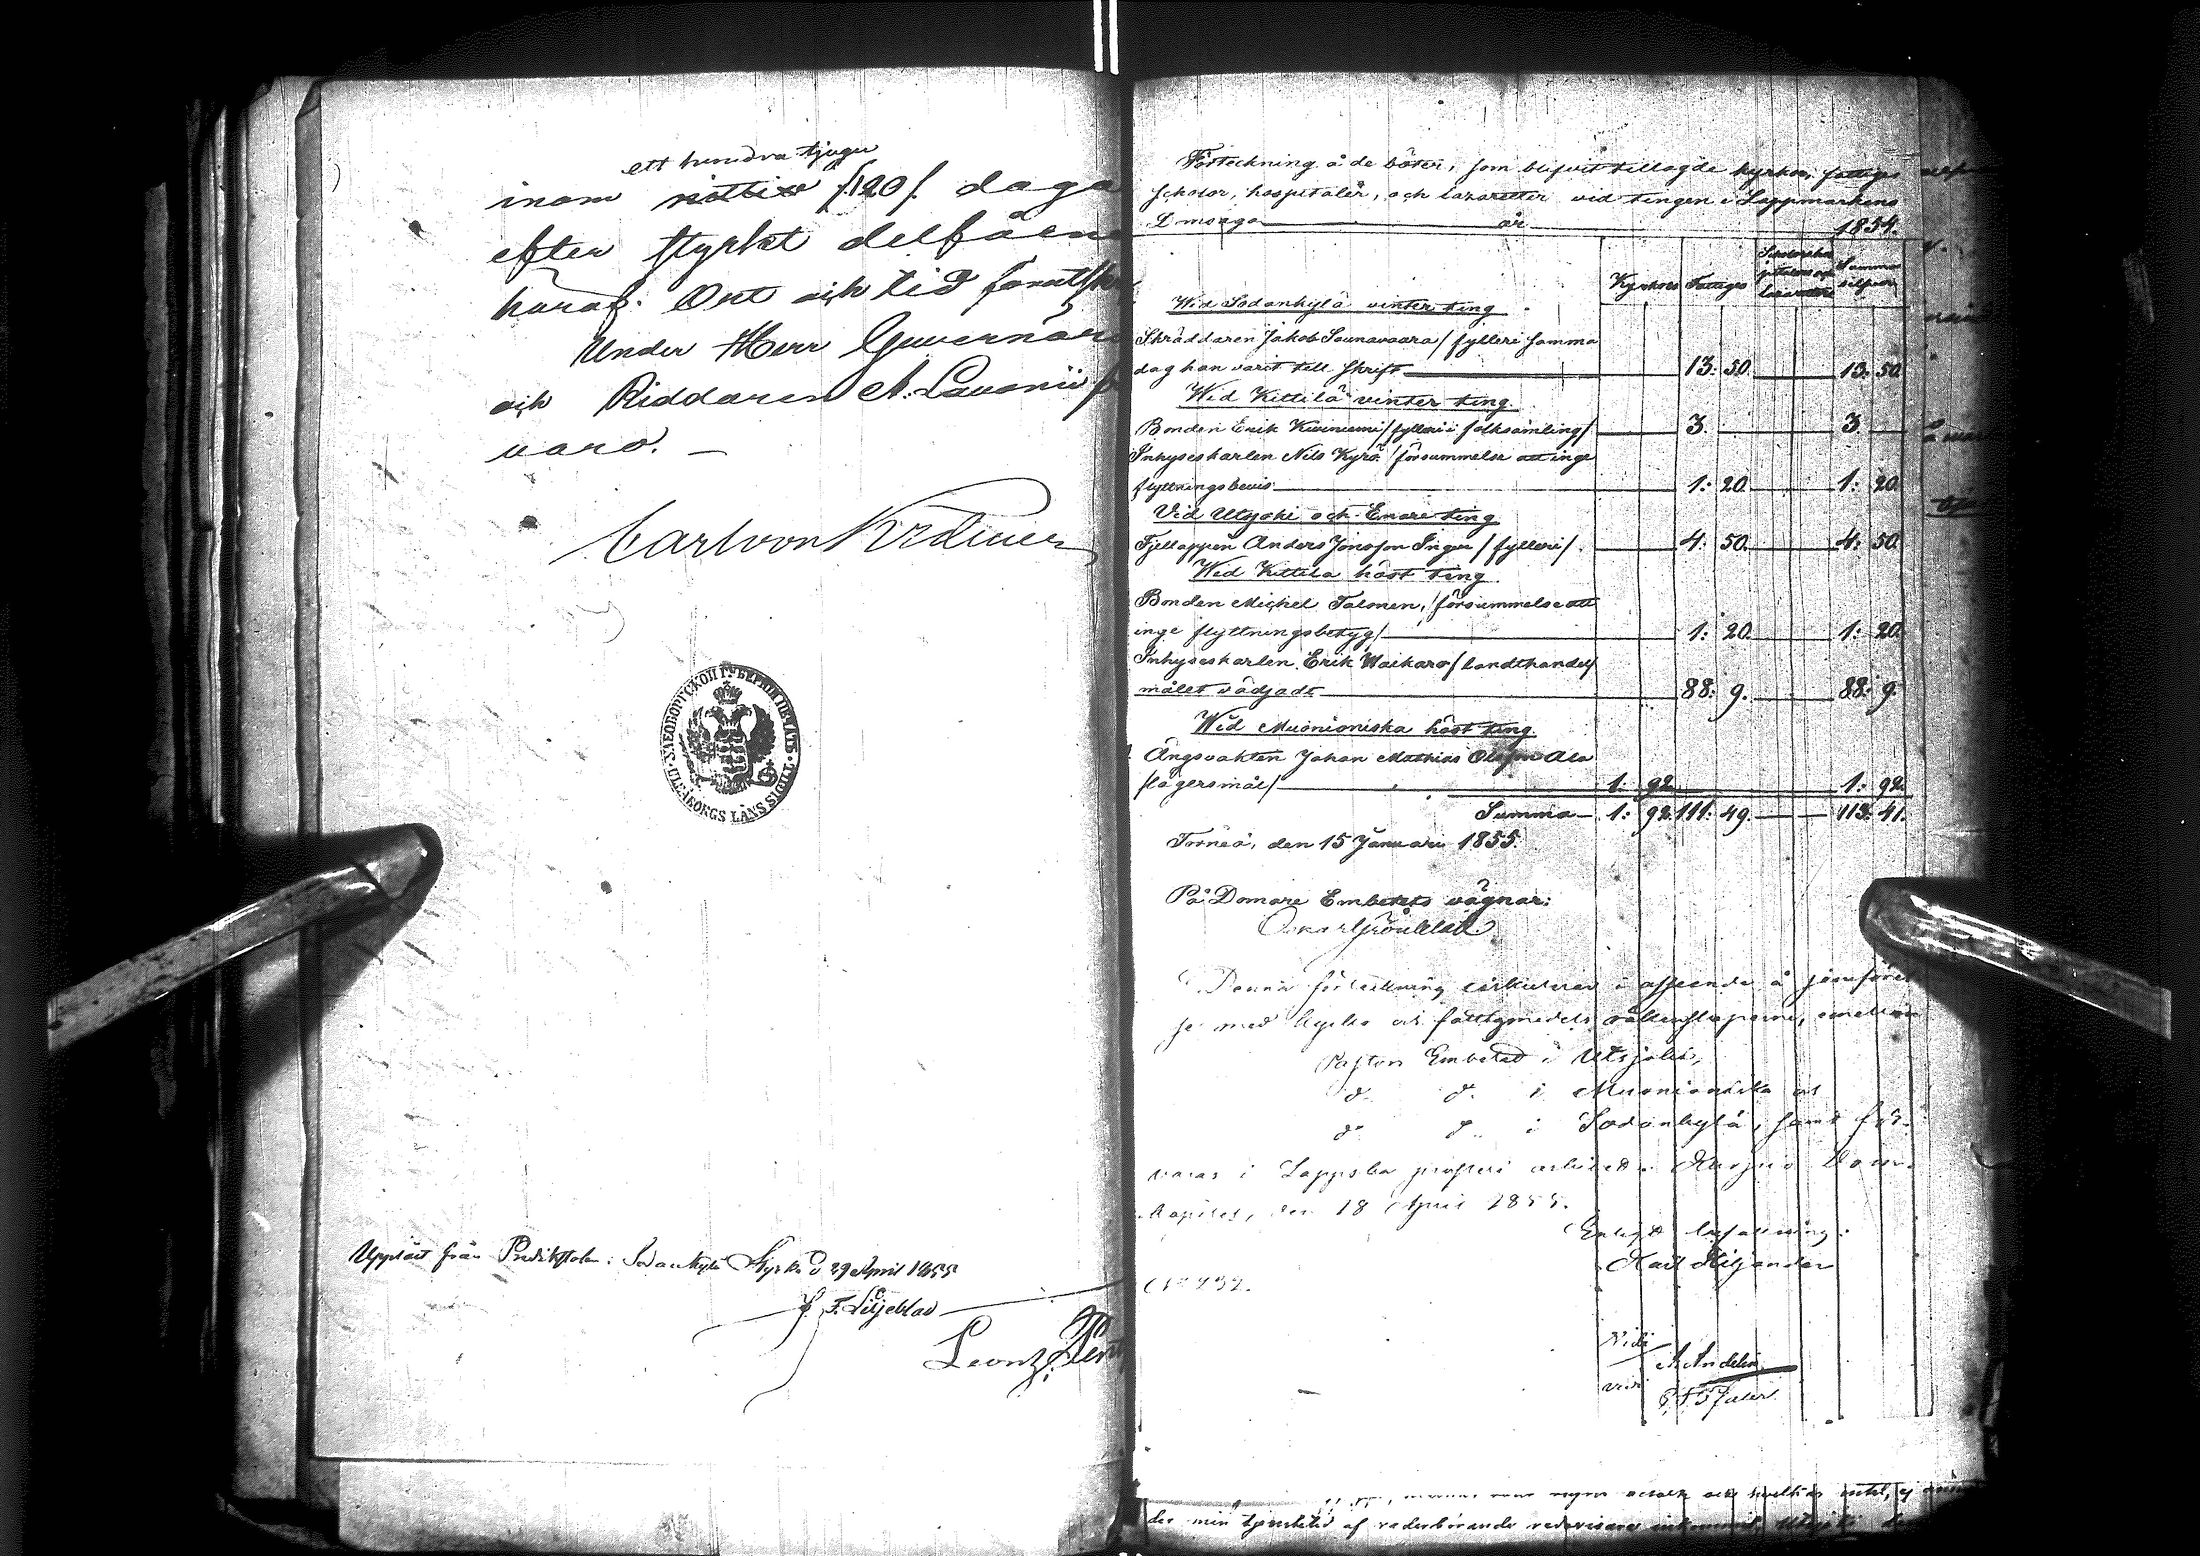 ett hundra tjugu
inom nittio /:120/. daga
efter styrkt delfåen
häraf. Ort och tid förutsk
Under Herr Guvernörs
och Riddaren A. Lavonii f
varo. –
Carl von Kræmer
УЛЕОБОРГСКОЙ ГУБЕРНIИ ПЕЧАТЬ
ULEÅBORGS LÄNS SIGILL
Uppläst från Predikstolen i Sodankylä Kyrka d 29 April 1855
J. F. Liljeblad
Förteckning å de böter, som blifvit tillagde kyrkor, fattiga
skolor, hospitaler, och lazaretter vid tingen i Lappmarkens
Domsaga år 1854.
Kyrkors Fattigas lazaretters Summa silfver
Wid Sodankylä vinter ting
Skräddaren Jakob Saunavaara / fylleri samma
dag han varit till skrift 13: 50. 13: 50
Wid Kittilä vinter ting.
Bonden Erik Kiviniemi / fylleri i folksamling / 3. 3.
Inhyseskarlen Nils Kyrö / försummelse att inge
flyttningsbevis 1: 20. 1: 20.
Vid Utsjoki och Enare ting
Fjellappen Anders Jonsson Inger / fylleri /. 4: 50. 4: 50
Wid Kittilä höst ting.
Bonden Michel Talonen, / försummelse att
inge flyttningsbetyg / 1: 20. 1: 20
Inhyseskarlen Erik Waikavo / landthandel /
målet vädjadt 88: 9. 88: 9.
Wid Muonioniska höst ting.
Ängsvakten Johan Mathias Olofson Ala
slagersmål / 1: 92. 1: 92.
Summa 1: 92. 111: 49. 113: 41.
Torneå, den 15 Januari 1855.
På Domare Embetets vägnar:
Denna förteckning cirkulerar i afseende å jemförel
se med kyrko och fattigmedels räkenskaperne, emellan
Pastors Embetet i Utsjoki,
d:o d:o i Muonioniska och
d:o d:o i Sodankylä, samt för-
varas i Lappska prosteri arkivet.
den 18 April 1855.
Enligt befallning:
Karl Hiljander
N:o 232.
Vidi
A. Andelin
vidi